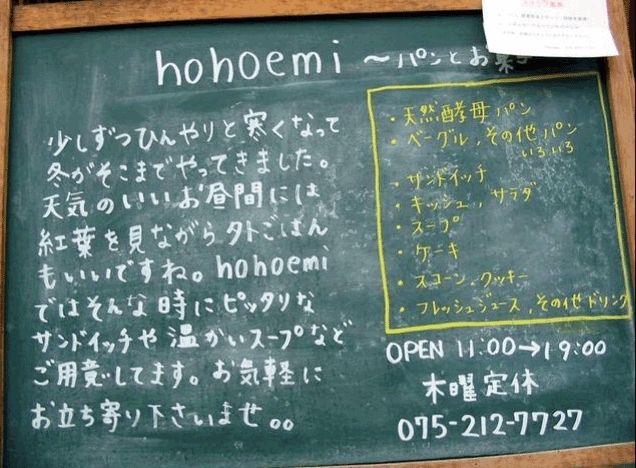 hohoemi ～パンとお菓子
少しずつひんやりと寒くなって
冬がそこまでやってきました。
天気のいいお昼間には
紅葉を見ながら外ごはん
もいいですね。hohoemi
ではそんな時にピッタリな
サンドイッチや温かいスープなど
ご用意してます。お気軽に
お立ち寄り下さいませ。。
・天然酵母パン
・ベーグル,その他パン
いろいろ
・サンドイッチ
・キッシュ,サラダ
・スープ
・ケーキ
・スコーン,クッキー
・フレッシュジュース,その他ドリンク
OPEN 11:00→19:00
木曜定休
075-212-7727